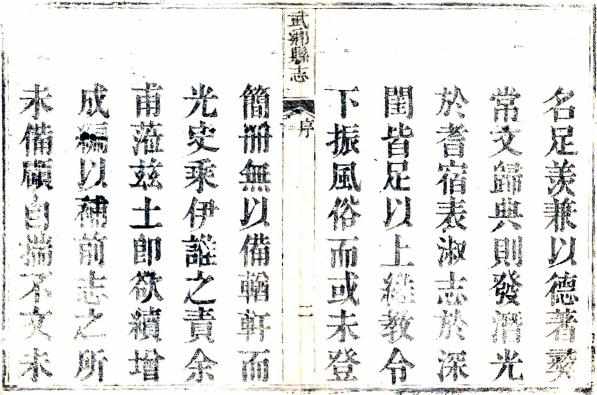 名足羡兼以德著彛
常文歸典則發潛光
於耆宿表淑志於深
閨皆足以上維教令
下振風俗而或未登
武鄉縣志
序
二
簡册無以備輶軒而
光史乘伊誰之責余
甫蒞兹土卽欲續增
成編以補前志之所
未備顧自揣不文未